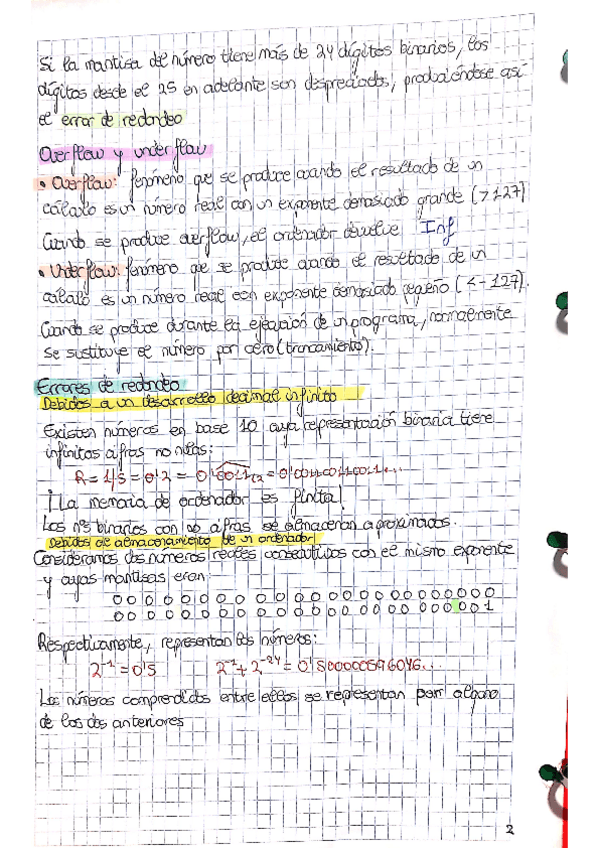 Si la mantisa del número tiene más de 24 dígitos binarios, los
dígitos desde el 25 en adelante son despreciados, produciéndose así
el error de redondeo
Overflow y underflow
• Overflow: fenómeno que se produce cuando el resultado de un
cálculo es un número real con un exponente demasiado grande (>127)
Cuando se produce overflow, el ordenador devuelve Inf
• Underflow: fenómeno que se produce cuando el resultado de un
cálculo es un número real con exponente demasiado pequeño (<-127).
Cuando se produce durante la ejecución de un programa, normalmente
se sustituye el número por cero (truncamiento).
Errores de redondeo
Debidos a un desarrollo decimal infinito
Existen números en base 10 cuya representación binaria tiene
infinitas cifras no nulas:
R = 1/5 = 0'2 = 0'0011₍₂ = 0'001100110011...
¡La memoria de ordenador es finita!
Los nºs binarios con ∞ cifras se almacenan aproximados.
Debidos al almacenamiento de un ordenador
Consideramos dos números reales consecutivos con el mismo exponente
y cuyas mantisas eran:
00 0 0 0 0 0 0 0 0 0 0 0 0 0 0 0 000 000
00 0 0 0 0 0 0 0 0 0 0 0 0 0 0 0 000 001
Respectivamente, representan los números:
2⁻¹ = 0'5 2⁻¹ + 2⁻²⁴ = 0'500000596046...
Los números comprendidos entre ellos se representan por alguno
de los dos anteriores
2